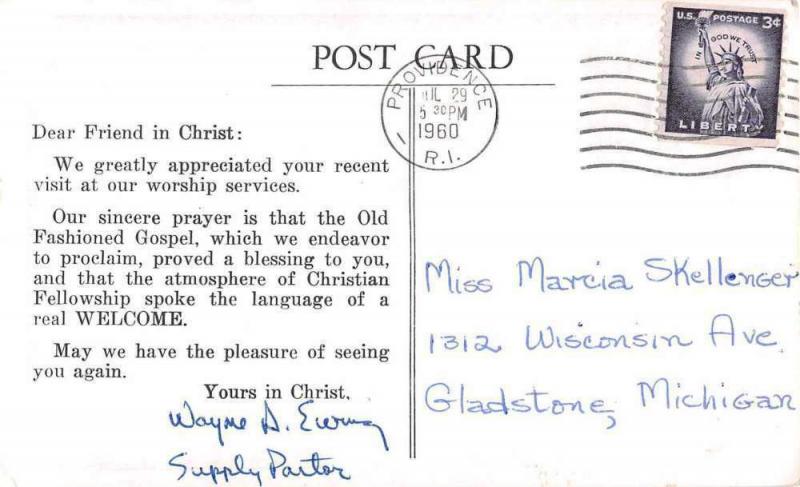 POST CARD
U.S. POSTAGE 3¢
IN GOD WE TRUST
LIBERTY
PROVIDENCE
JUL 29
5 30 PM
1960
R.I.
Dear Friend in Christ:
We greatly appreciated your recent
visit at our worship services.
Our sincere prayer is that the Old
Fashioned Gospel, which we endeavor
to proclaim, proved a blessing to you,
and that the atmosphere of Christian
Fellowship spoke the language of a
real WELCOME.
May we have the pleasure of seeing
you again.
Yours in Christ,
Wayne A.
Supply Pastor
Miss Marcia Skellenger
1312 Wisconsin Ave.
Gladstone, Michigan